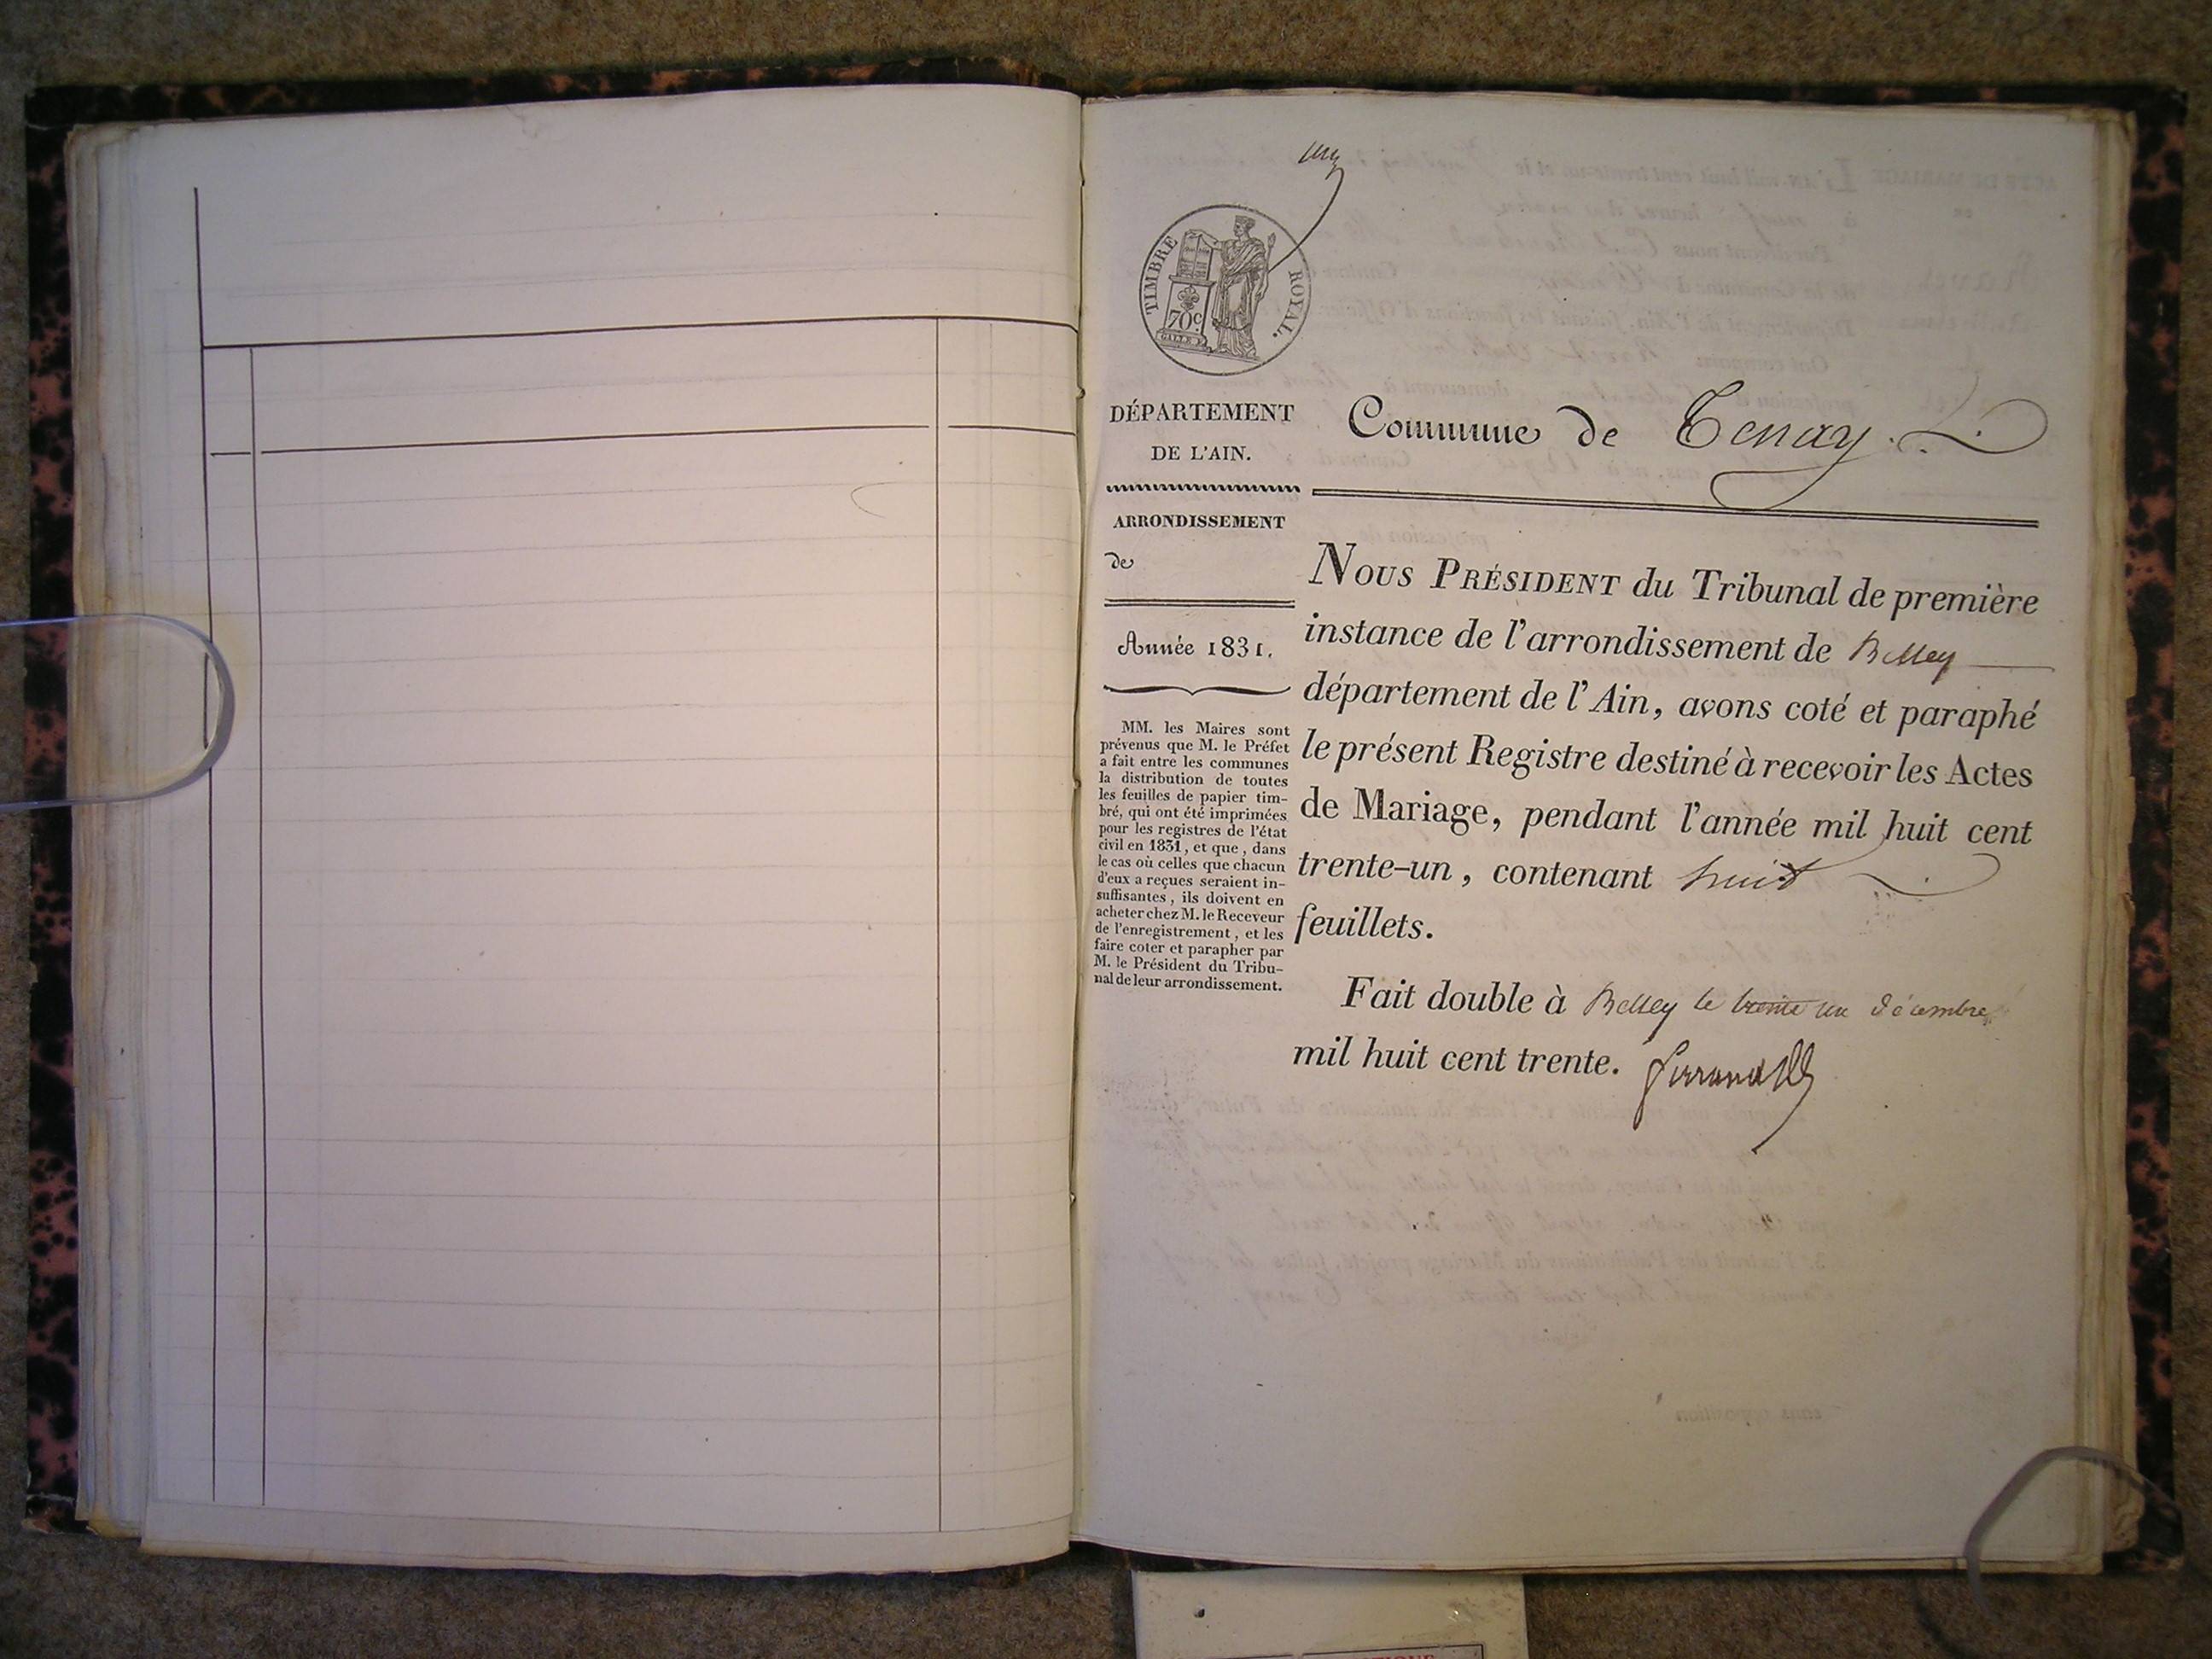 un
TIMBRE ROYAL.
70c
GALLE
DÉPARTEMENT
DE L'AIN.
Commune de Tenay.
ARRONDISSEMENT
de
Année 1831.
MM. les Maires sont
prévenus que M. le Préfet
a fait entre les communes
la distribution de toutes
les feuilles de papier tim-
bré, qui ont été imprimées
pour les registres de l'état
civil en 1831, et que, dans
le cas où celles que chacun
d'eux a reçues seraient in-
suffisantes, ils doivent en
acheter chez M. le Receveur
de l'enregistrement, et les
faire coter et parapher par
M. le Président du Tribu-
nal de leur arrondissement.
NOUS PRÉSIDENT du Tribunal de première
instance de l'arrondissement de Belley
département de l'Ain, avons coté et paraphé
le présent Registre destiné à recevoir les Actes
de Mariage, pendant l'année mil huit cent
trente-un, contenant huit
feuillets.
Fait double à Belley le trente un décembre
mil huit cent trente.